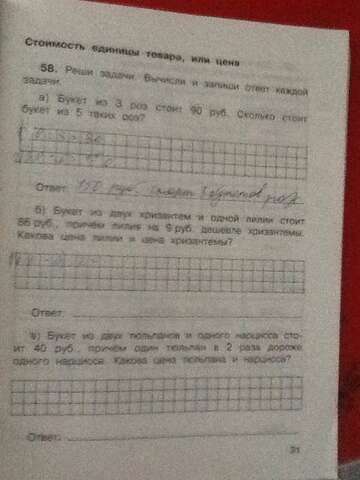 Стоимость единицы товара, или цена
58. Реши задачи. Вычисли и запиши ответ каждой
задачи.
а) Букет из 3 роз стоит 90 руб. Сколько стоит
букет из 5 таких роз?
Ответ: 150 руб. стоит букетов роз
б) Букет из двух хризантем и одной лилии стоит
86 руб., причём лилия на 9 руб. дешевле хризантемы.
Какова цена лилии и цена хризантемы?
Ответ:
в) Букет из двух тюльпанов и одного нарцисса сто-
ит 40 руб., причём один тюльпан в 2 раза дороже
одного нарцисса. Какова цена тюльпана и нарцисса?
Ответ:
31